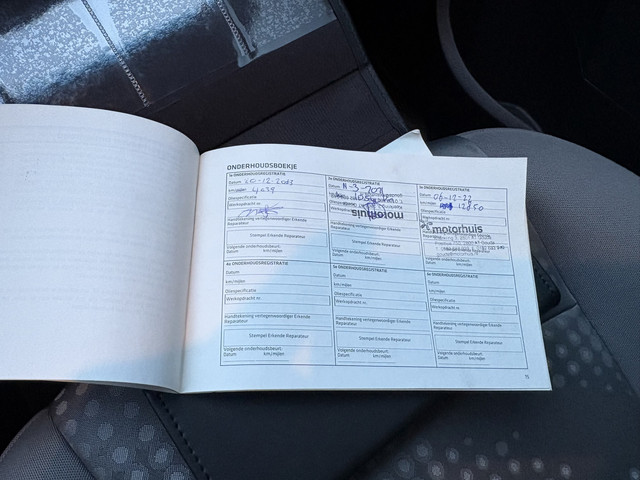 ONDERHOUDSBOEKJE
1e ONDERHOUDSREGISTRATIE
Datum
km/mijlen 4039
Oliespecificatie
Werkopdracht nr.
Handtekening vertegenwoordiger Erkende
Reparateur
Stempel Erkende Reparateur
Volgende onderhoudsbeurt:
Datum km/mijlen
2e ONDERHOUDSREGISTRATIE
Datum 11-3-2021
motorhuis
Handtekening vertegenwoordiger Erkende
Reparateur
Stempel Erkende Reparateur
Volgende onderhoudsbeurt:
Datum km/mijlen
3e ONDERHOUDSREGISTRATIE
Datum 06-12-22
km/mijlen 12850
Oliespecificatie
Werkopdracht nr.
motorhuis
4e ONDERHOUDSREGISTRATIE
Datum
km/mijlen
Oliespecificatie
Werkopdracht nr.
Handtekening vertegenwoordiger Erkende
Reparateur
Stempel Erkende Reparateur
Volgende onderhoudsbeurt:
Datum km/mijlen
5e ONDERHOUDSREGISTRATIE
Datum
km/mijlen
Oliespecificatie
Werkopdracht nr.
Handtekening vertegenwoordiger Erkende
Reparateur
Stempel Erkende Reparateur
Volgende onderhoudsbeurt:
Datum km/mijlen
6e ONDERHOUDSREGISTRATIE
Datum
km/mijlen
Oliespecificatie
Werkopdracht nr.
Handtekening vertegenwoordiger Erkende
Reparateur
Stempel Erkende Reparateur
Volgende onderhoudsbeurt:
Datum km/mijlen